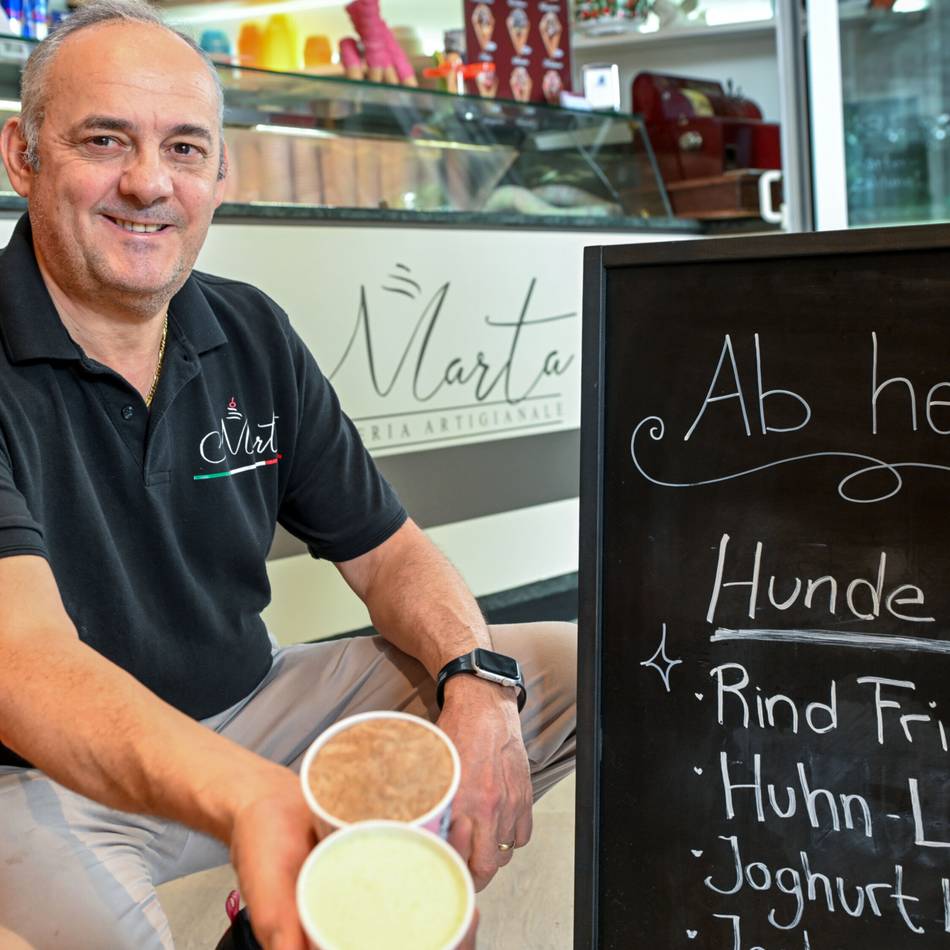 Marta
ERIA ARTIGIANALE
Mart
Ab he
Hunde
Rind Fri
Huhn-L
Joghurt